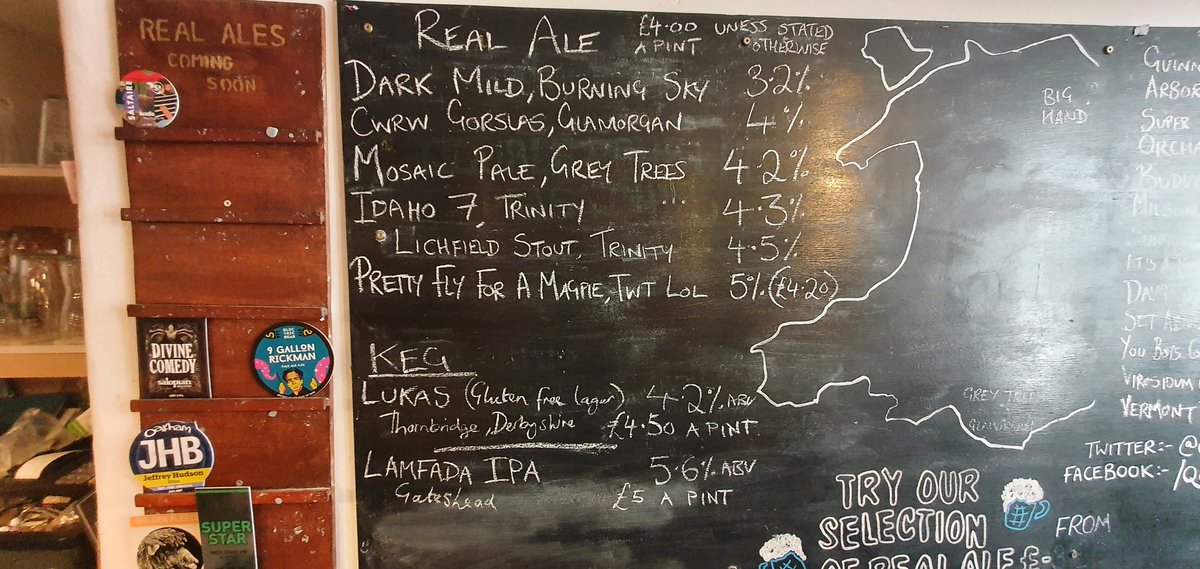 REAL ALES
COMING
SOON
SALTAIRE
DIVINE
COMEDY
salopian
9 GALLON
RICKMAN
PALE ALE
Oakham
JHB
Jeffrey Hudson
SUPER
STAR
REAL ALE £4.00 UNESS STATED
A PINT OTHERWISE
DARK MILD, BURNING SKY 3.2%
CWRW GORSLAS, GLAMORGAN 4%
MOSAIC PALE, GREY TREES 4.2%
IDAHO 7, TRINITY 4.3%
LICHFIELD STOUT, TRINITY 4.5%
PRETTY FLY FOR A MAGPIE, TWT LOL 5% (£4.20)
KEG
LUKAS (Gluten free lager) 4.2% ABV
Thornbridge, Derbyshire £4.50 A PINT
LAMFADA IPA 5.6% ABV
Gateshead £5 A PINT
BIG
HAND
GREY
TRY OUR
SELECTION
OF REAL ALE £-
FROM
GUINN
ARBOR
SUPER
ORCHA
BUDV
IT'S A
DAV
SET A
YOU BOYS
VIRESIDUM
VERMONT
TWITTER:- @
FACEBOOK:- /Q